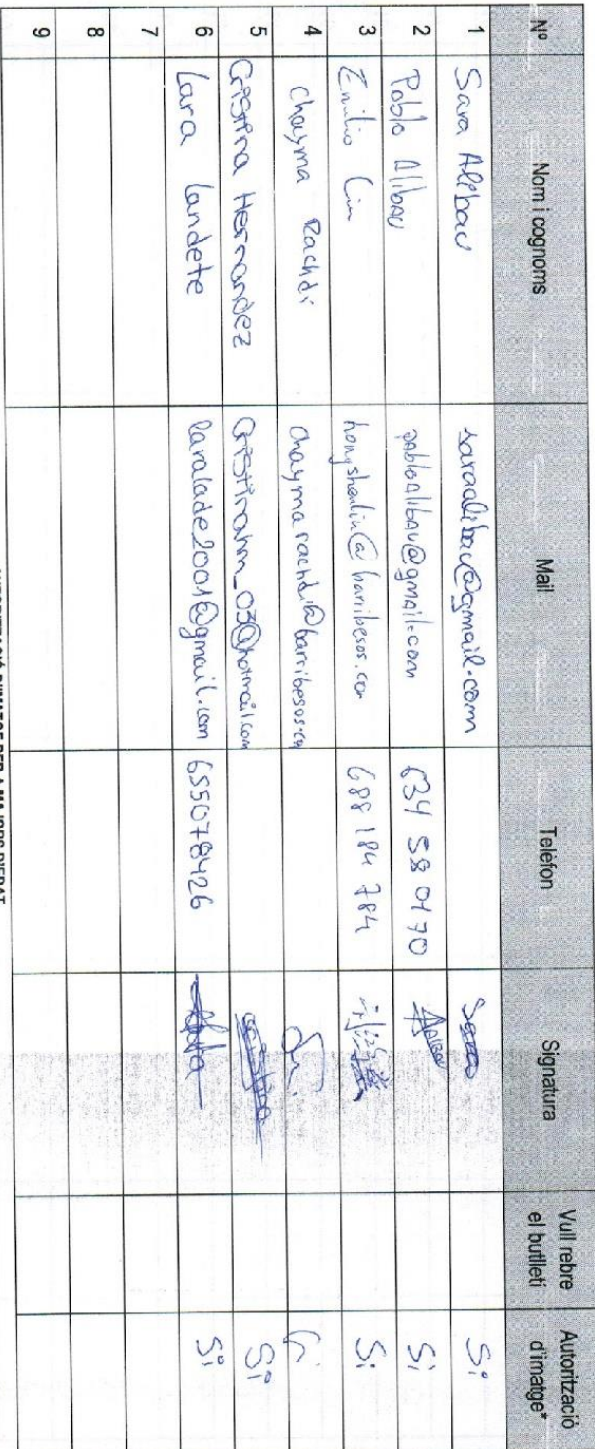 Nº Nom i cognoms Mail Telèfon Signatura Vull rebre el butlletí Autorització d'imatge*
1 Sara Alibau saraalibau@gmail.com Si
2 Pablo Alibau pabloalibau@gmail.com 634 58 01 70 Si
3 Emilio Lin hongshenlin@barribesos.com 688 184 784 Si
4 Chayma Rachdi chaymarachdi@barribesos.com Si
5 Cristina Hernandez Cristinahm_03@hotmail.com Si
6 Lara Landete laralade2001@gmail.com 655078426 Si
7
8
9
AUTORITZACIÓ D'IMATGE PER A MAJORS D'EDAT